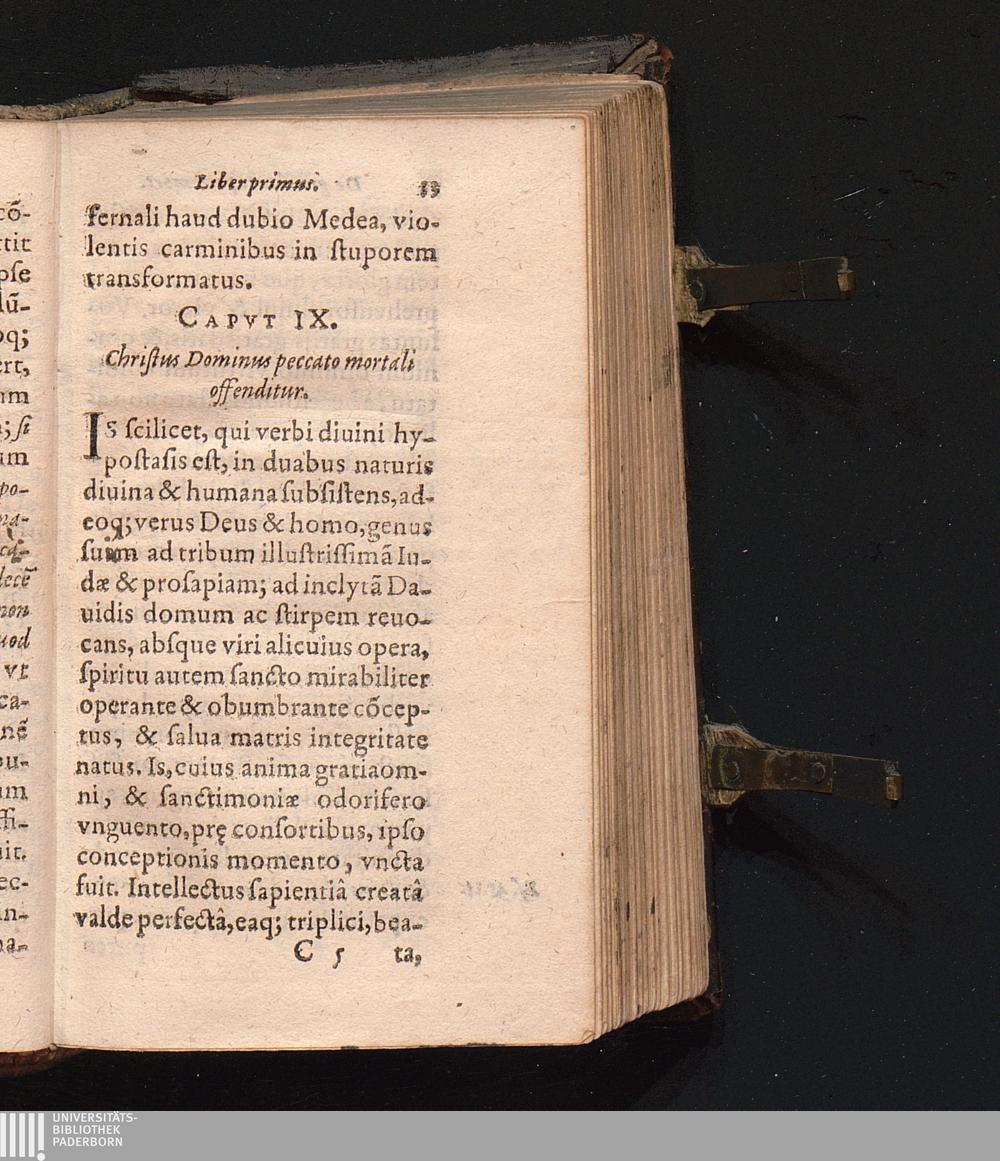 Liber primus. 33
fernali haud dubio Medea, vio-
lentis carminibus in ſtuporem
transformatus.
CAPVT IX.
Chriſtus Dominus peccato mortali
offenditur.
IS ſcilicet, qui verbi diuini hy-
poſtaſis eſt, in duabus naturis
diuina & humana ſubſiſtens, ad-
eoq; verus Deus & homo, genus
ſuum ad tribum illuſtriſſimã Iu-
dæ & proſapiam; ad inclytã Da-
uidis domum ac ſtirpem reuo-
cans, abſque viri alicuius opera,
ſpiritu autem ſancto mirabiliter
operante & obumbrante cõcep-
tus, & ſalua matris integritate
natus. Is, cuius anima gratia om-
ni, & ſanctimoniæ odorifero
vnguento, prę conſortibus, ipſo
conceptionis momento, vncta
fuit. Intellectus ſapientiâ creatâ
valde perfectâ, eaq; triplici, bea-
C 5 ta,
cõ-
ttit
pſe
lũ-
oq;
ert,
um
; ſi
um
po-
na-
lecẽ
non
uod
vt
ca-
nẽ
bu-
um
ffi-
uit.
ec-
in-
na-
UNIVERSITÄTS-
BIBLIOTHEK
PADERBORN